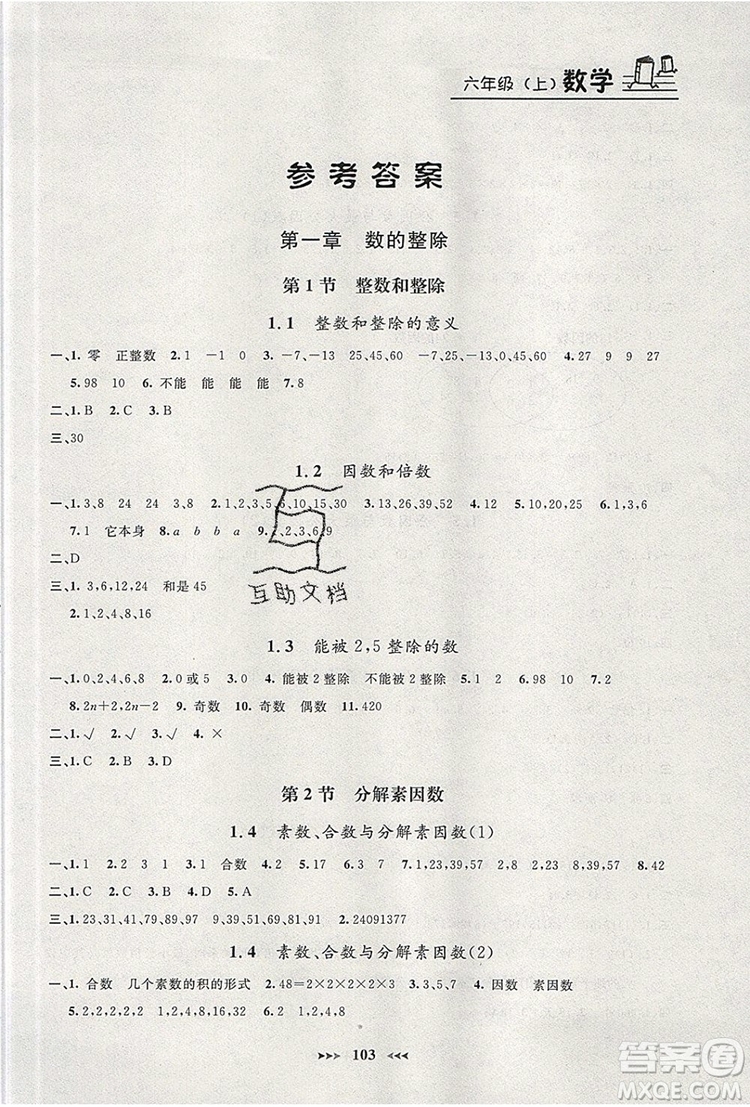 六年级（上）数学
参考答案
第一章　数的整除
第1节　整数和整除
1.1　整数和整除的意义
一、1.零　正整数　2.1　－1　0　3.－7,－13　25,45,60　－7,25,－13,0,45,60　4.27　9　9　27
5.98　10　6.不能　能　能　能　7.8
二、1.B　2.C　3.B
三、30
1.2　因数和倍数
一、1.3,8　24　24　3,8　2.1,2,3,5,6,10,15,30　3.13,26,39,52　4.12　5.10,20　6.1,3,6
7.1　它本身　8.a　b　b　a　9.1,2,3,6　9
二、D
三、1.3,6,12,24　和是45
2.1,2,4,8,16
互助文档
1.3　能被2,5整除的数
一、1.0,2,4,6,8　2.0或5　3.0　4.能被2整除　不能被2整除　5.1　2　6.98　10　7.2
8.2n＋2,2n－2　9.奇数　10.奇数　偶数　11.420
二、1.√　2.√　3.√　4.×
三、1.C　2.B　3.D　4.D
第2节　分解素因数
1.4　素数、合数与分解素因数(1)
一、1.1　2.2　3　1　3.1　合数　4.2　5.2　6.31,37　7.21,23,39,57　2,4,8,20,32　23　2　8.42
二、1.C　2.C　3.C　4.D　5.A
三、1.23,31,41,79,89,97　9,39,51,69,81,91　2.24091377
1.4　素数、合数与分解素因数(2)
一、1.合数　几个素数的积的形式　2.48＝2×2×2×2×3　3.3,5,7　4.因数　素因数
5.2,2,2,2,2　1,2,4,8,16,32　6.2,2,2　1,2,4,8
103
答案圈
MXQE.COM